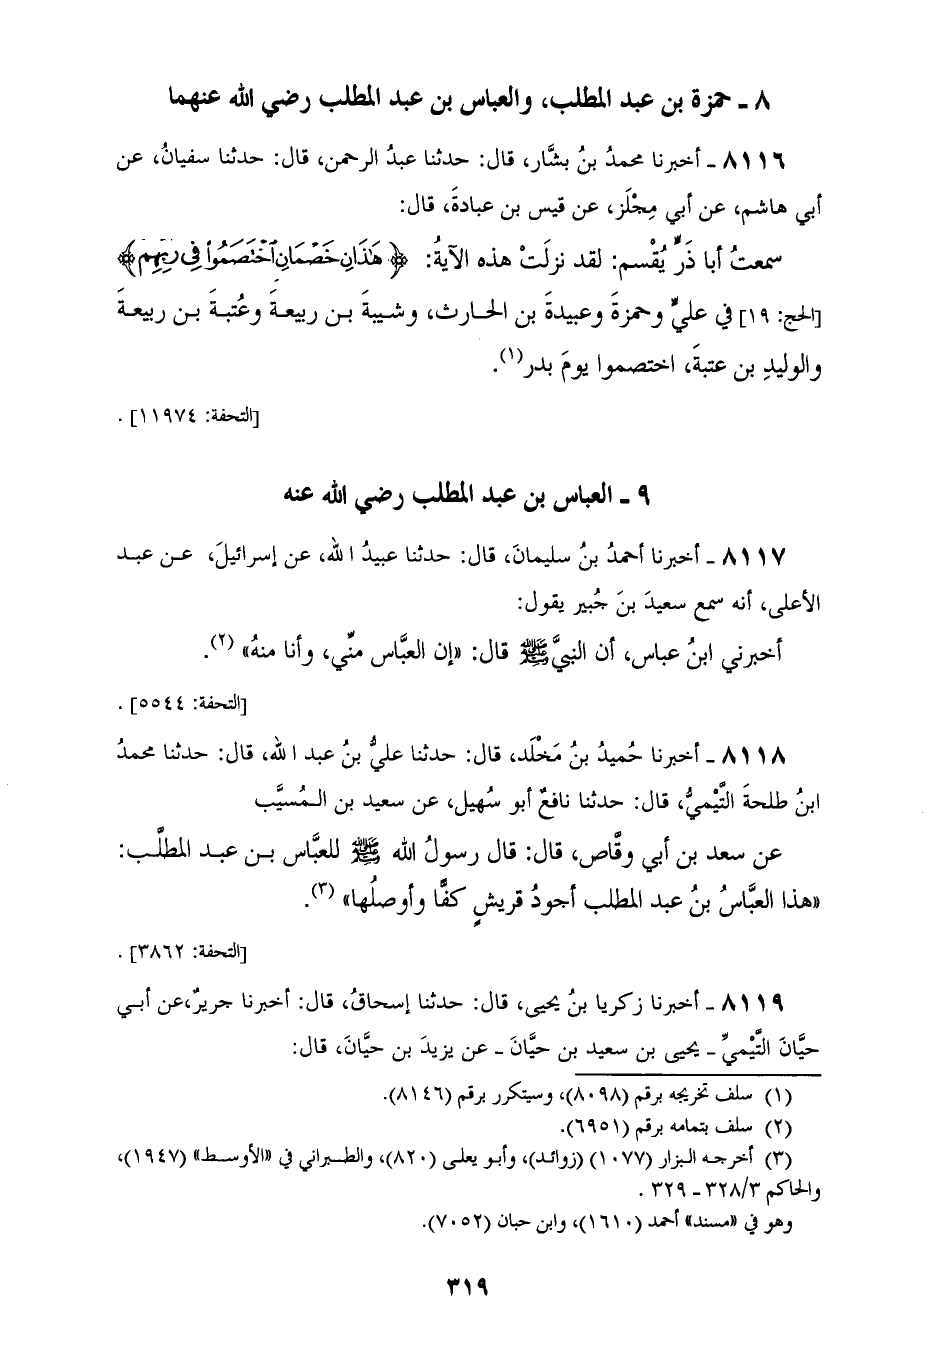 ٨ ـ حمزة بن عبد المطلب، والعباس بن عبد المطلب رضي الله عنهما
٨١١٦ ـ أخبرنا محمدُ بنُ بشَّار، قال: حدثنا عبدُ الرحمن، قال: حدثنا سفيانُ، عن
أبي هاشم، عن أبي مِجْلَز، عن قيس بن عبادةَ، قال:
سمعتُ أبا ذَرٍّ يُقْسم: لقد نزلَتْ هذه الآيةُ: ﴿هَذَانِ خَصْمَانِ اخْتَصَمُواْ فِى رَبِّهِمْ﴾
[الحج: ١٩] في عليٍّ وحمزةَ وعبيدةَ بن الحارث، وشيبةَ بن ربيعةَ وعُتبةَ بن ربيعةَ
والوليدِ بن عتبةَ، اختصموا يومَ بدر(١).
[التحفة: ١١٩٧٤] .
٩ ـ العباس بن عبد المطلب رضي الله عنه
٨١١٧ ـ أخبرنا أحمدُ بنُ سليمانَ، قال: حدثنا عبيدُ الله، عن إسرائيلَ، عن عبد
الأعلى، أنه سمع سعيدَ بنَ جُبير يقول:
أخبرني ابنُ عباس، أن النبيَّ ﷺ قال: «إن العبَّاس منِّي، وأنا منهُ» (٢).
[التحفة: ٥٥٤٤] .
٨١١٨ ـ أخبرنا حُميدُ بنُ مَخْلَد، قال: حدثنا عليُّ بنُ عبد الله، قال: حدثنا محمدُ
ابنُ طلحةَ التَّيْميُّ، قال: حدثنا نافعٌ أبو سُهيل، عن سعيد بن المُسيَّب
عن سعد بن أبي وقَّاص، قال: قال رسولُ الله ﷺ للعبَّاس بن عبد المطلَّب:
«هذا العبَّاسُ بنُ عبد المطلب أجودُ قريشٍ كفًّا وأوصلُها» (٣).
[التحفة: ٣٨٦٢] .
٨١١٩ ـ أخبرنا زكريا بنُ يحيى، قال: حدثنا إسحاقُ، قال: أخبرنا جريرٌ،عن أبي
حيَّانَ التَّيْميِّ ـ يحيى بن سعيد بن حيَّانَ ـ عن يزيدَ بن حيَّانَ، قال:
(١) سلف تخريجه برقم (٨٠٩٨)، وسيتكرر برقم (٨١٤٦).
(٢) سلف بتمامه برقم (٦٩٥١).
(٣) أخرجه البزار (١٠٧٧) (زوائد)، وأبو يعلى (٨٢٠)، والطبراني في «الأوسط» (١٩٤٧)،
والحاكم ٣٢٨/٣ ـ ٣٢٩ .
وهو في «مسند» أحمد (١٦١٠)، وابن حبان (٧٠٥٢).
٣١٩